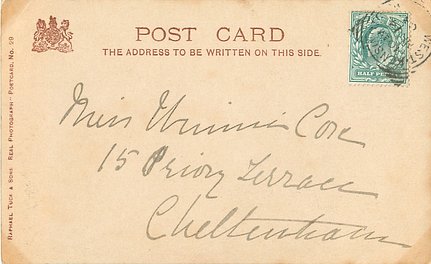 POST CARD
THE ADDRESS TO BE WRITTEN ON THIS SIDE.
RAPHAEL TUCK & SONS REAL PHOTOGRAPH - POSTCARD, No. 29
HALF PENNY
WEST
Miss Winnie Core
15 Priory Terrace
Cheltenham